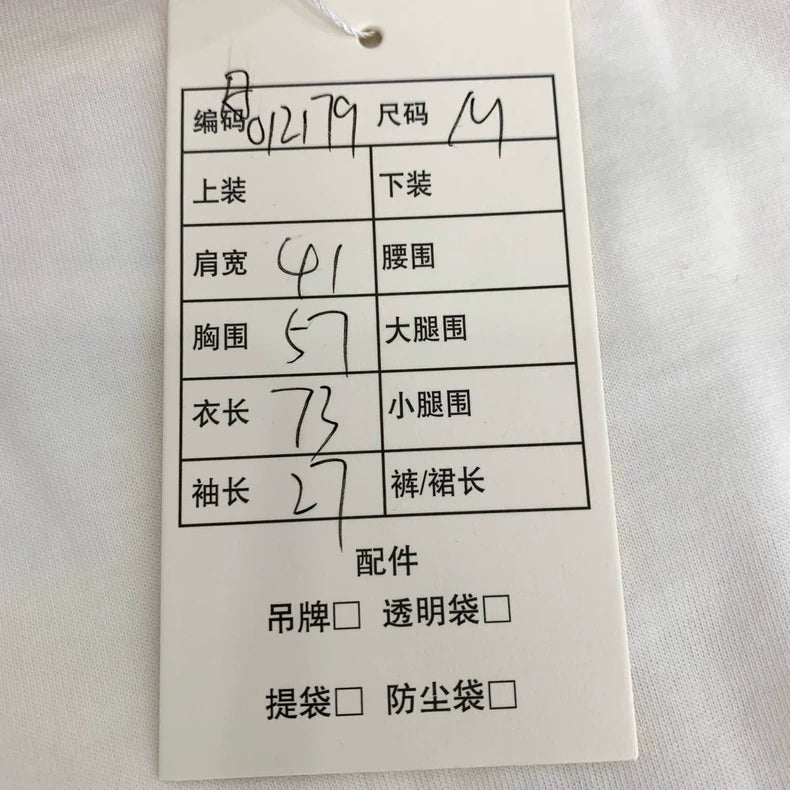 编码 012179 尺码 M
上装 下装
肩宽 41 腰围
胸围 57 大腿围
衣长 73 小腿围
袖长 27 裤/裙长
配件
吊牌□ 透明袋□
提袋□ 防尘袋□